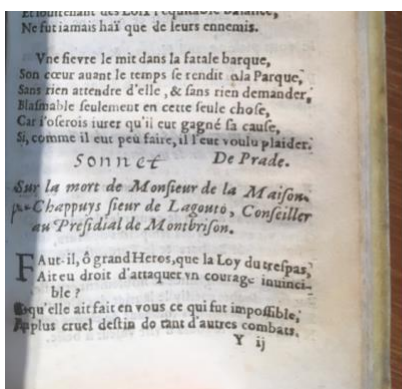 Et ſouſtenant des Loix l'equitable balance,
Ne fut iamais haï que de leurs ennemis.
Vne fievre le mit dans la fatale barque,
Son cœur auant le temps ſe rendit à la Parque,
Sans rien attendre d'elle, & ſans rien demander,
Blaſmable ſeulement en cette ſeule choſe,
Car i'oſerois iurer qu'il eut gagné ſa cauſe,
Si, comme il eut peu faire, il l'eut voulu plaider.
Sonnet De Prade.
Sur la mort de Monſieur de la Maiſon-
Chappuys ſieur de Lagouto, Conſeiller
au Preſidial de Montbriſon.
FAut-il, ô grand Heros, que la Loy du treſpas,
Ait eu droit d'attaquer vn courage inuinci-
ble ?
qu'elle ait fait en vous ce qui fut impoſſible,
plus cruel deſtin do tant d'autres combats.
Y ij